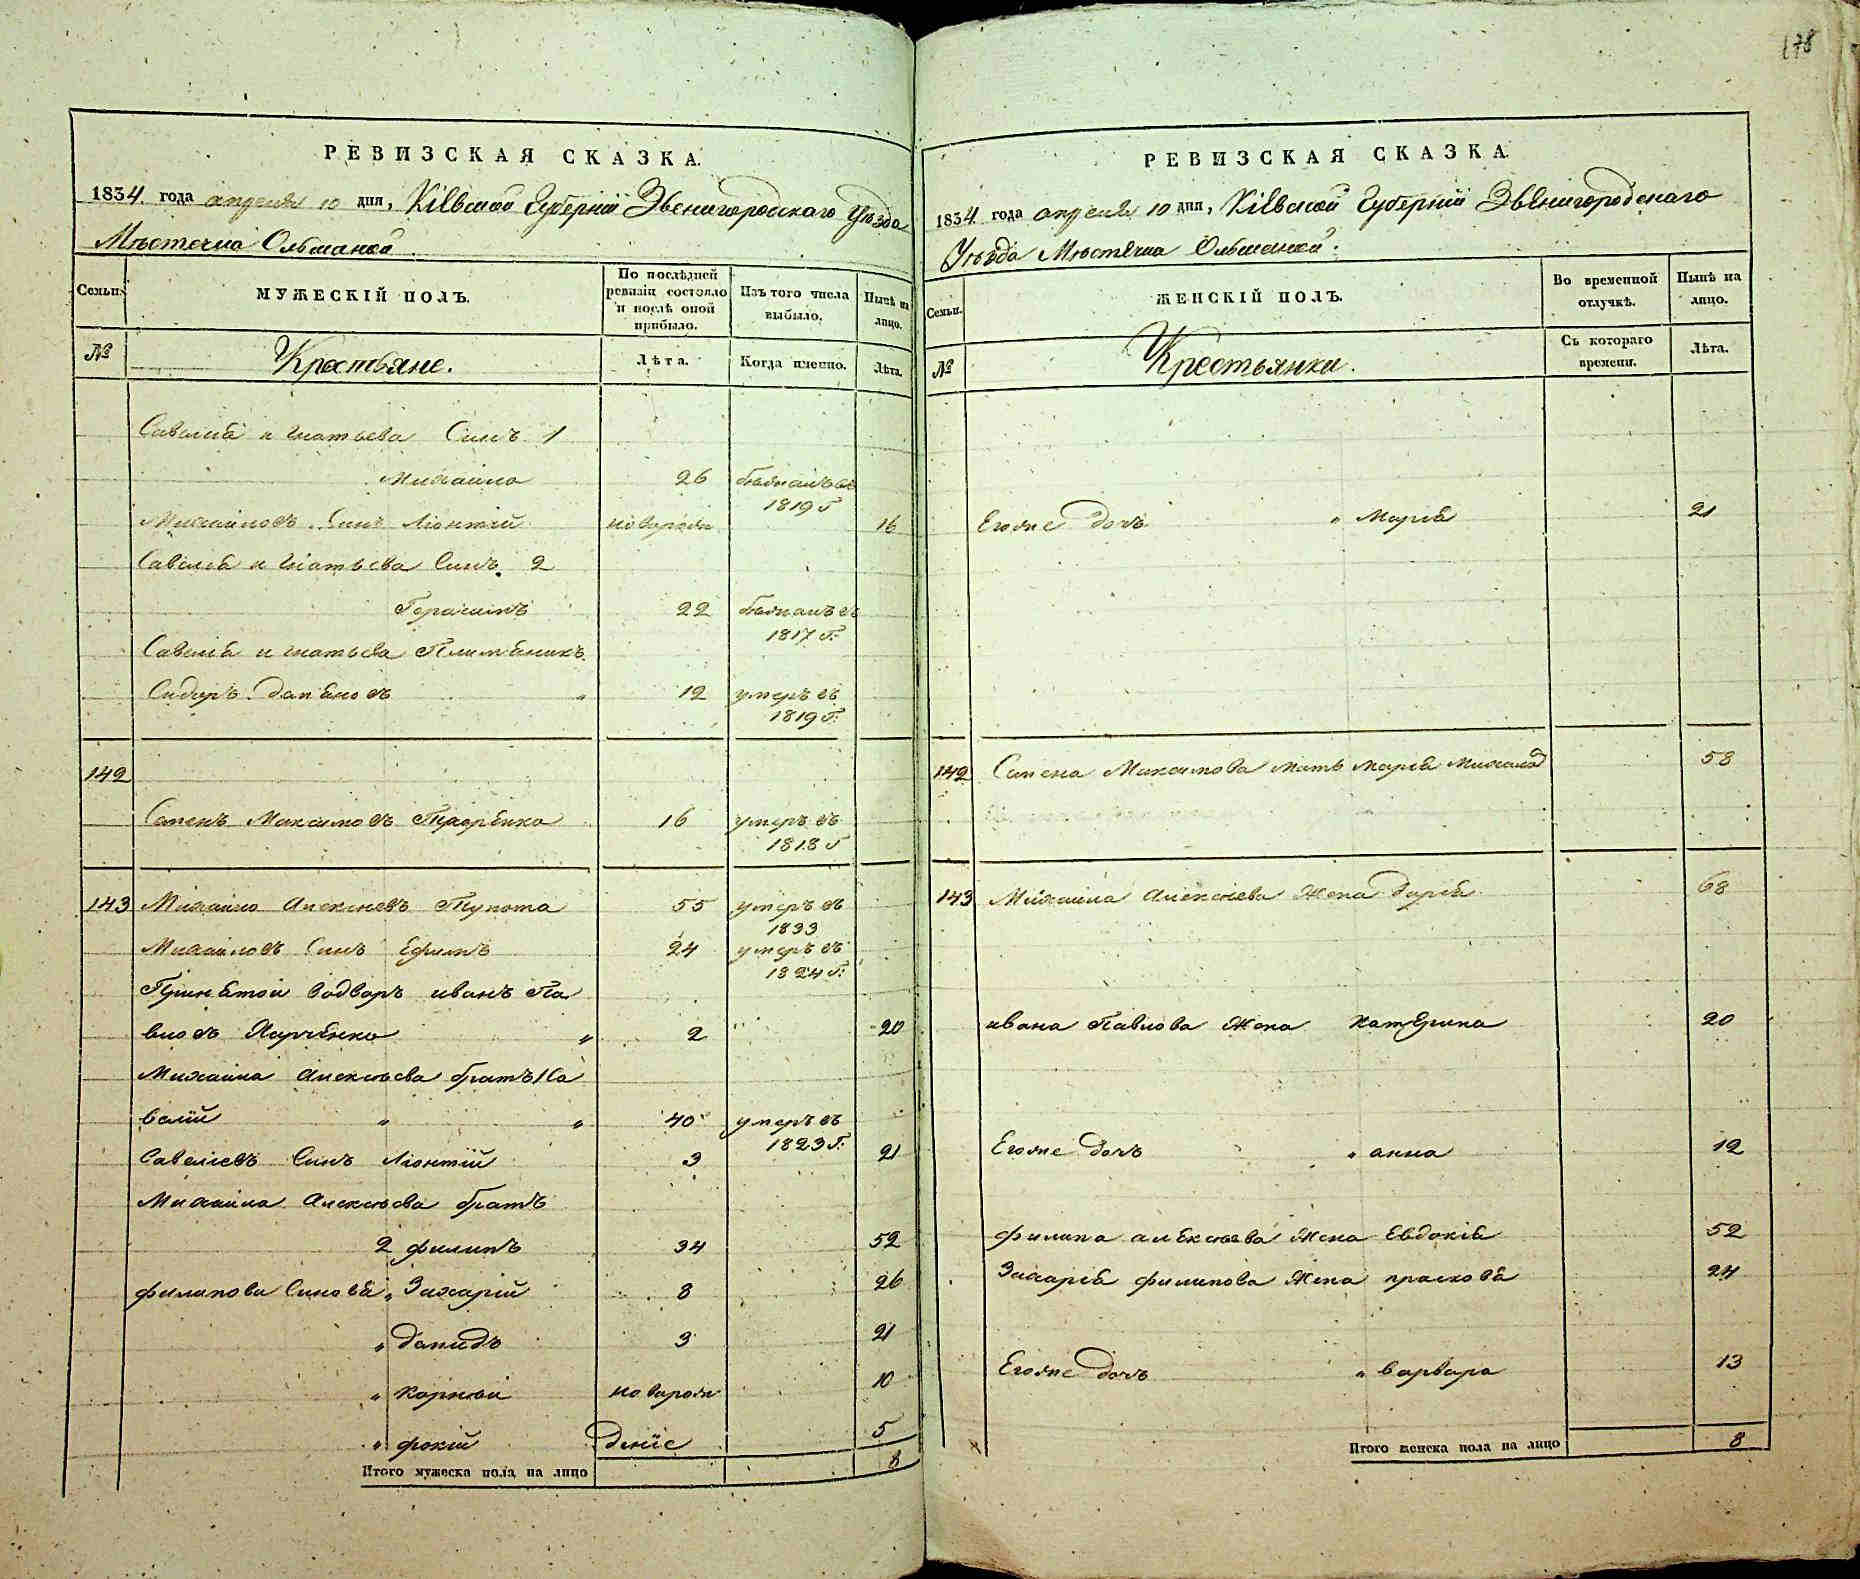 178
РЕВИЗСКАЯ СКАЗКА.
1834. года апреля 10 дня, Кіевской Губерніи Звенигородскаго Уѣзда
Мѣстечка Ольшаной
Семьи.
МУЖЕСКІЙ ПОЛЪ.
По послѣдней ревизіи состояло и послѣ оной прибыло.
Изъ того числа выбыло.
Нынѣ на лицо.
№
Крестьяне.
Лѣта.
Когда именно.
Лѣта.
Савелія Игнатьева Синъ 1
Михайло 26 бѣжалъ въ
1819 Г
Михайловъ Синъ Ліонтій новорож 16
Савелія Игнатьева Синъ 2
Герасимъ 22 бѣжалъ въ
1817 Г:
Савелія Игнатьева Племѣникъ
Сидоръ " 12 умеръ въ
1819 Г:
142
Семенъ Максимовъ 16 умеръ въ
1818 Г
143 Михайло Алексѣевъ 55 умеръ въ
1833
Михайловъ Синъ Ефимъ 24 умеръ въ
1824 Г:
Принятой водворъ иванъ Па
вловъ Харченко " 2 20
Михайла Алексѣева братъ 1 Са
велій " " 40 умеръ въ
1823 Г:
Савеліевъ Синъ Ліонтій 3 21
Михайла Алексѣева братъ
2 филипъ 34 52
филипови Синовя " Захарій 8 26
" Данидъ 3 21
" Корней новорож 10
" фокій Деніе 5
Итого мужеска пола на лицо 8
РЕВИЗСКАЯ СКАЗКА.
1834 года апреля 10 дня, Кіевской Губерніи Звенигородскаго
Уѣзда Мѣстечка Ольшаной.
Семьи.
ЖЕНСКІЙ ПОЛЪ.
Во временной отлучкѣ.
Нынѣ на лицо.
№
Крестьянки.
Съ котораго времени.
Лѣта.
Егоже дочь " Марія 21
142 Семена Максимова мать Марія 58
143 Михайла Алексѣева Жена Дарія 68
ивана Павлова Жена Катерина 20
Егоже дочь " анна 12
филипа алексѣева Жена Евдокія 52
Захарія филипова Жена прасковя 24
Егоже дочь " варвара 13
Итого женска пола на лицо 8